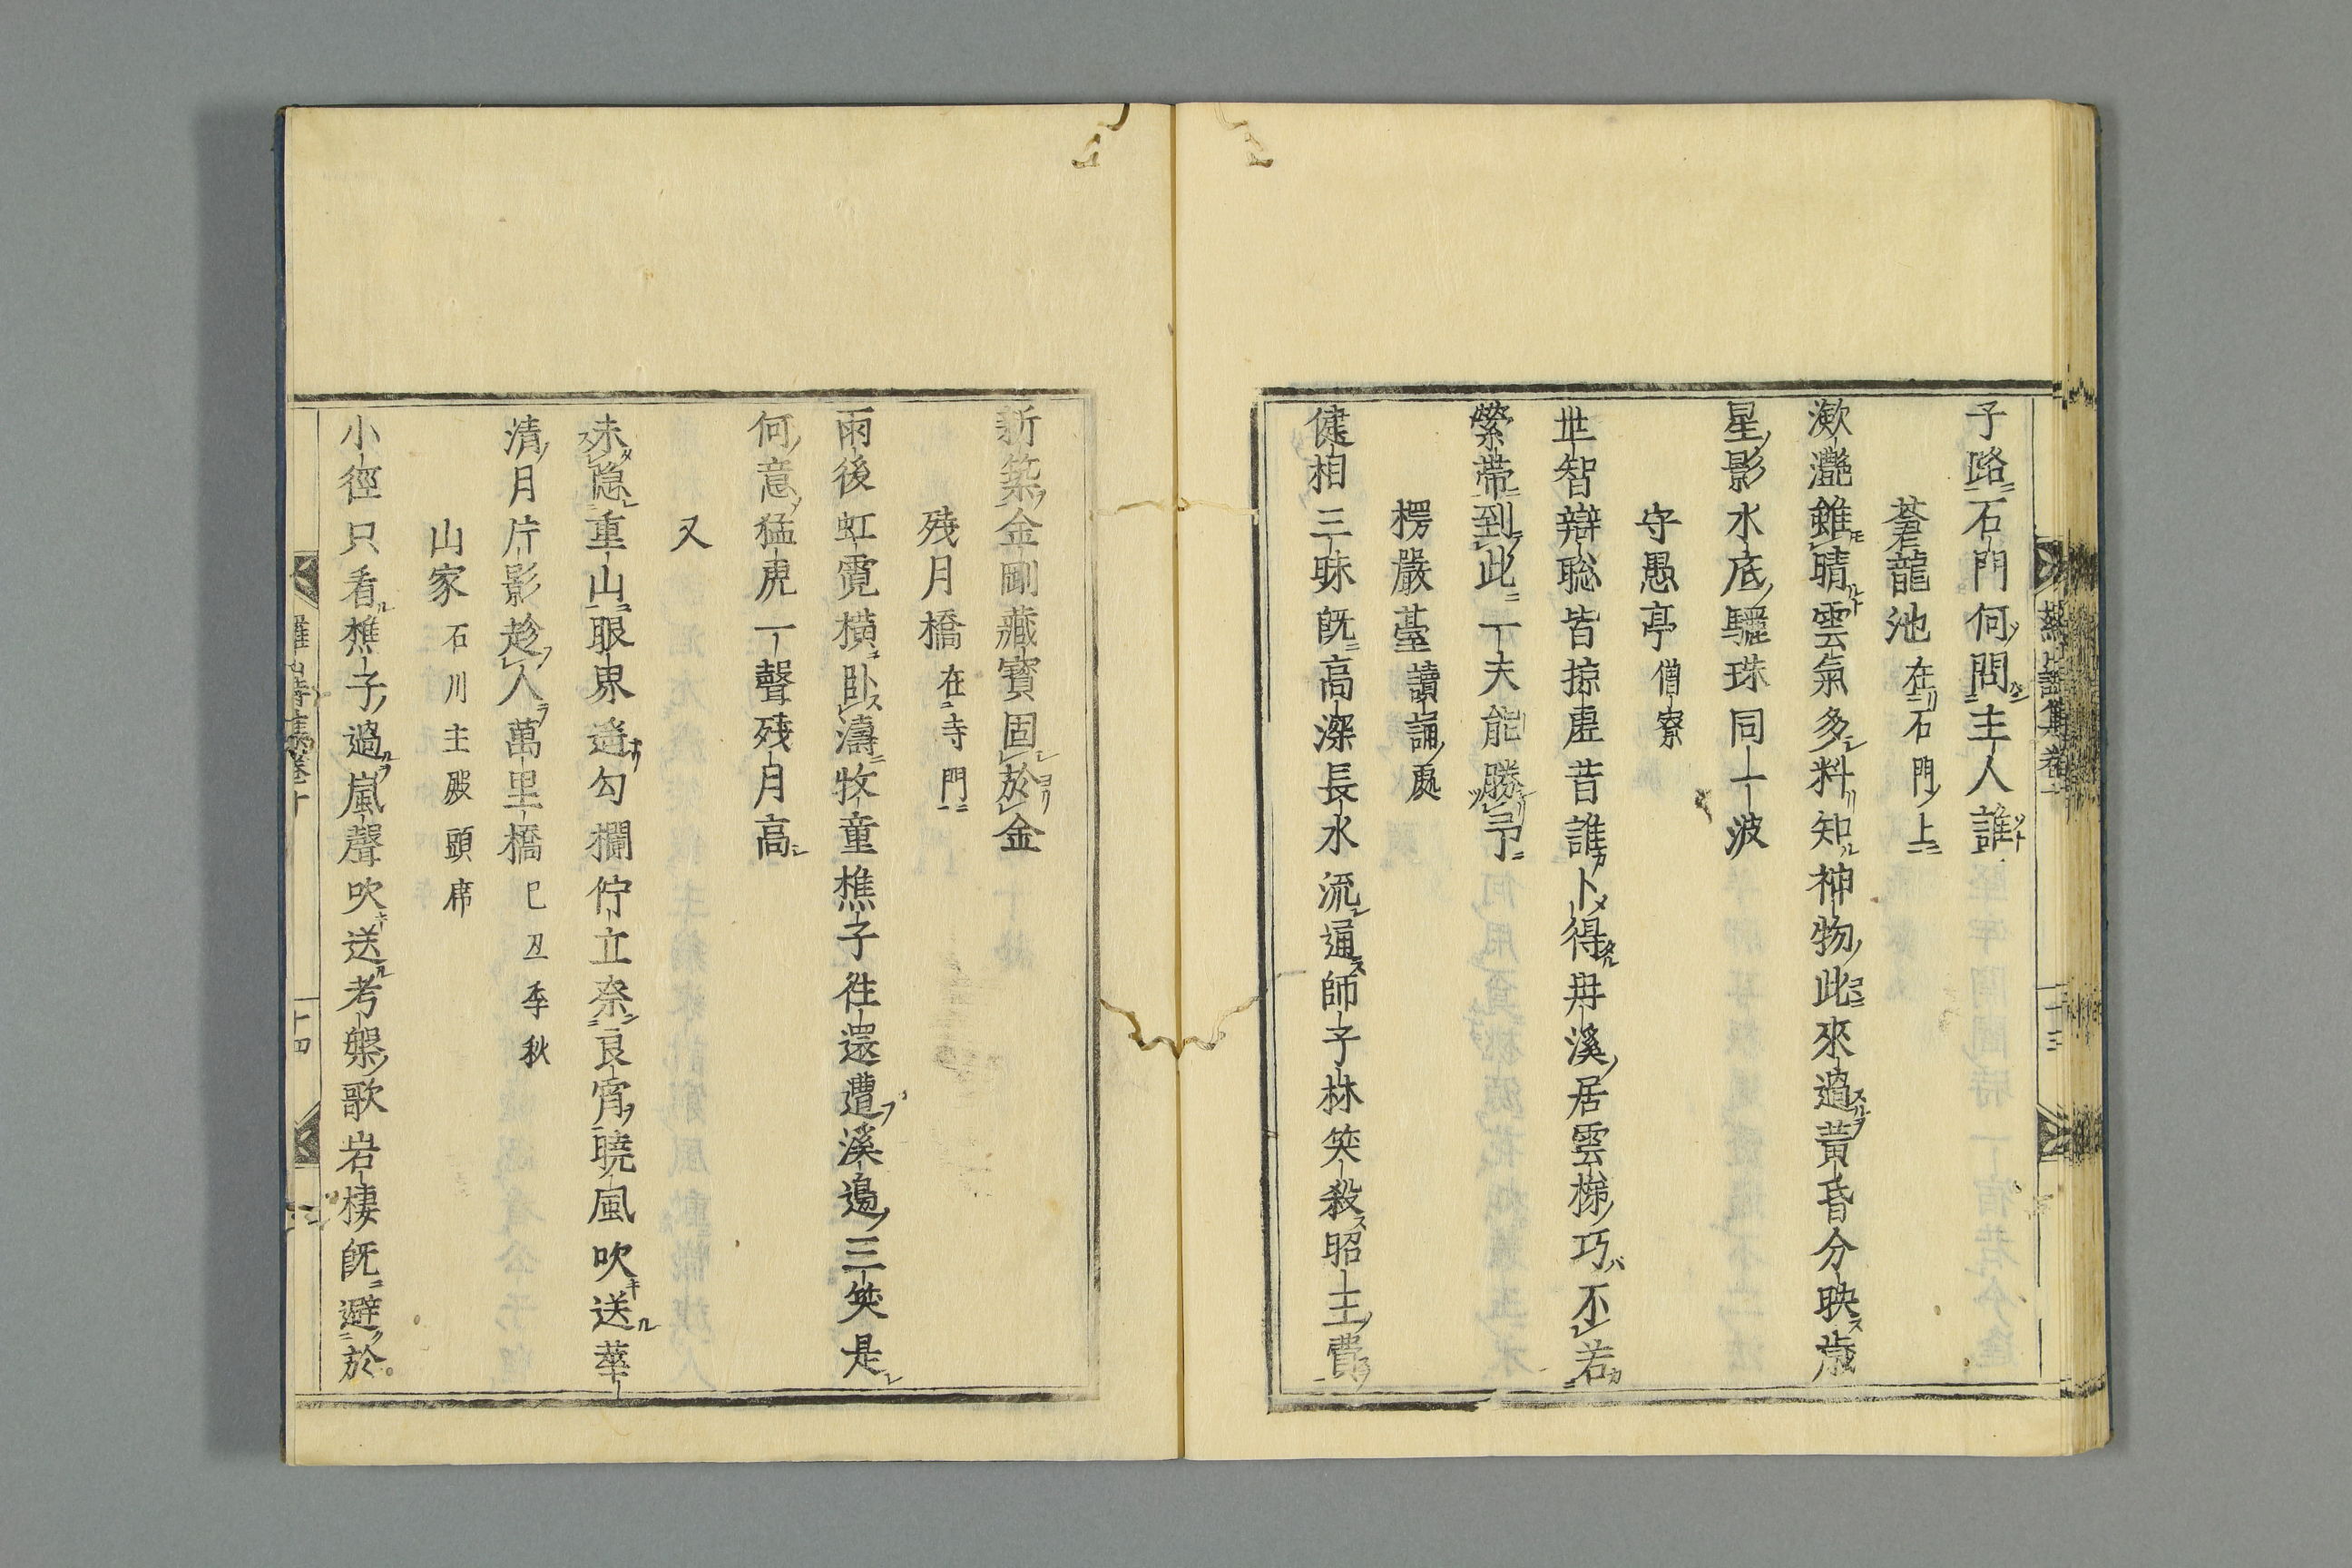 子路石門何問主人誰
蒼龍池在石門上
瀲灔雖晴雲氣多料知神物此來過黃昏分映歳
星影水底驪珠同一波
守愚亭僧寮
世智辯聡皆掠虚昔誰卜得冉溪居雲梯巧不若
縈帯到此一夫能勝予
楞嚴臺讀誦処
健相三昧既高深長水流通師子林笑殺昭王費
新築金剛藏寳固於金
残月橋在寺門
雨後虹霓横卧濤牧童樵子往還遭溪邉三笑是
何意猛虎一聲残月高
又
未隐重山眼界遥勾欄佇立奈良宵曉風吹送華
清月片影趂人萬里橋己丑季秋
山家石川主殿頭席
小徑只看樵子過嵐聲吹送考槃歌岩棲既避於